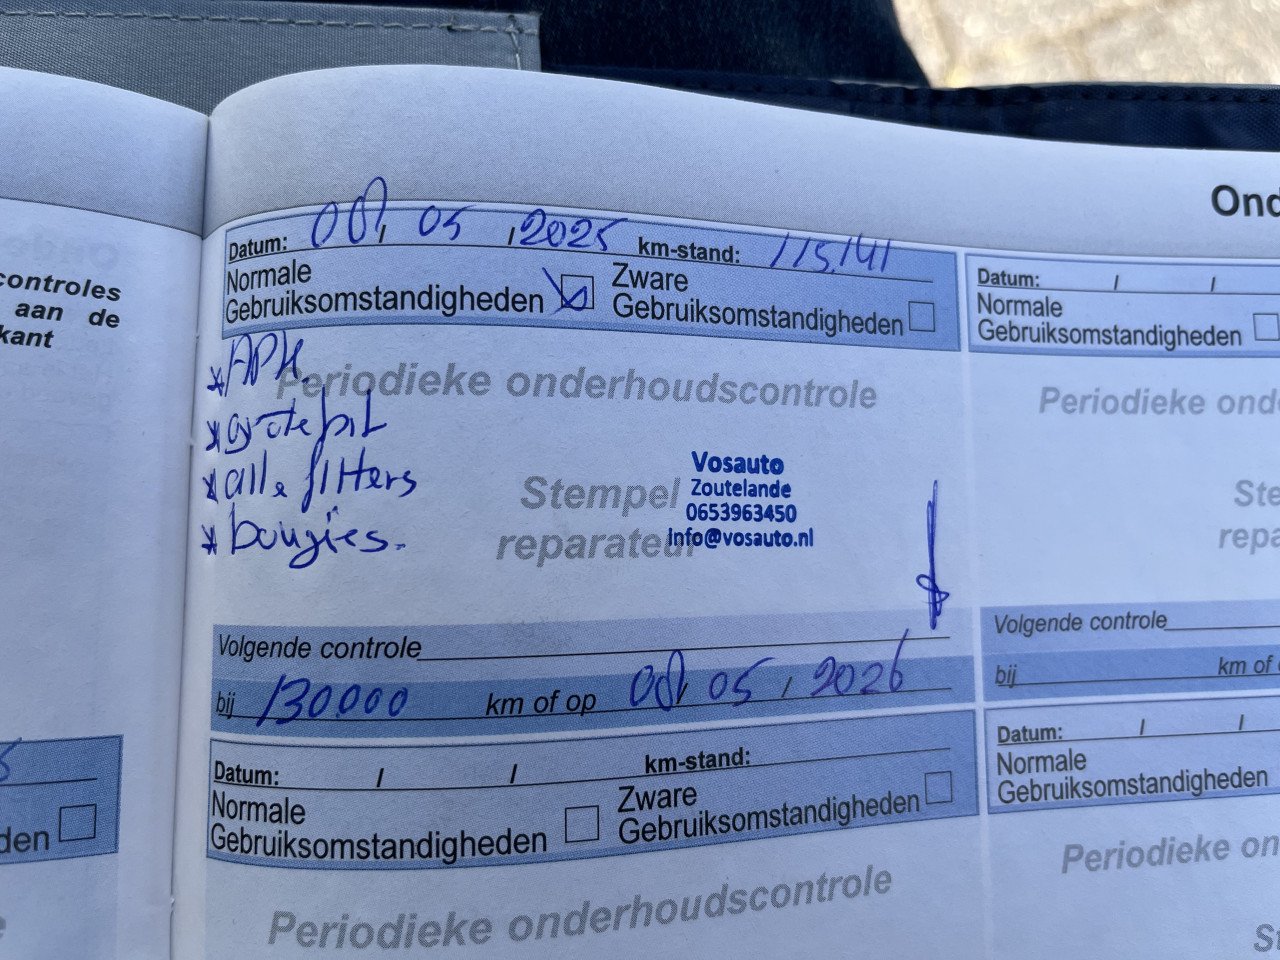 controles
aan de
kant
Ond
Datum: 08, 05, 2025 km-stand: 115.141
Normale
Gebruiksomstandigheden
Zware
Gebruiksomstandigheden
* APK.
Periodieke onderhoudscontrole
* grote bit
* alle filters
* bougies.
Stempel
reparateur
Vosauto
Zoutelande
0653963450
info@vosauto.nl
Volgende controle
bij 130000 km of op 08, 05, 2026
Datum: / / km-stand:
Normale
Gebruiksomstandigheden
Zware
Gebruiksomstandigheden
Periodieke onderhoudscontrole
Datum: / /
Normale
Gebruiksomstandigheden
Periodieke ond
Ste
repa
Volgende controle
bij km of o
Datum: / /
Normale
Gebruiksomstandigheden
Periodieke on
S
den